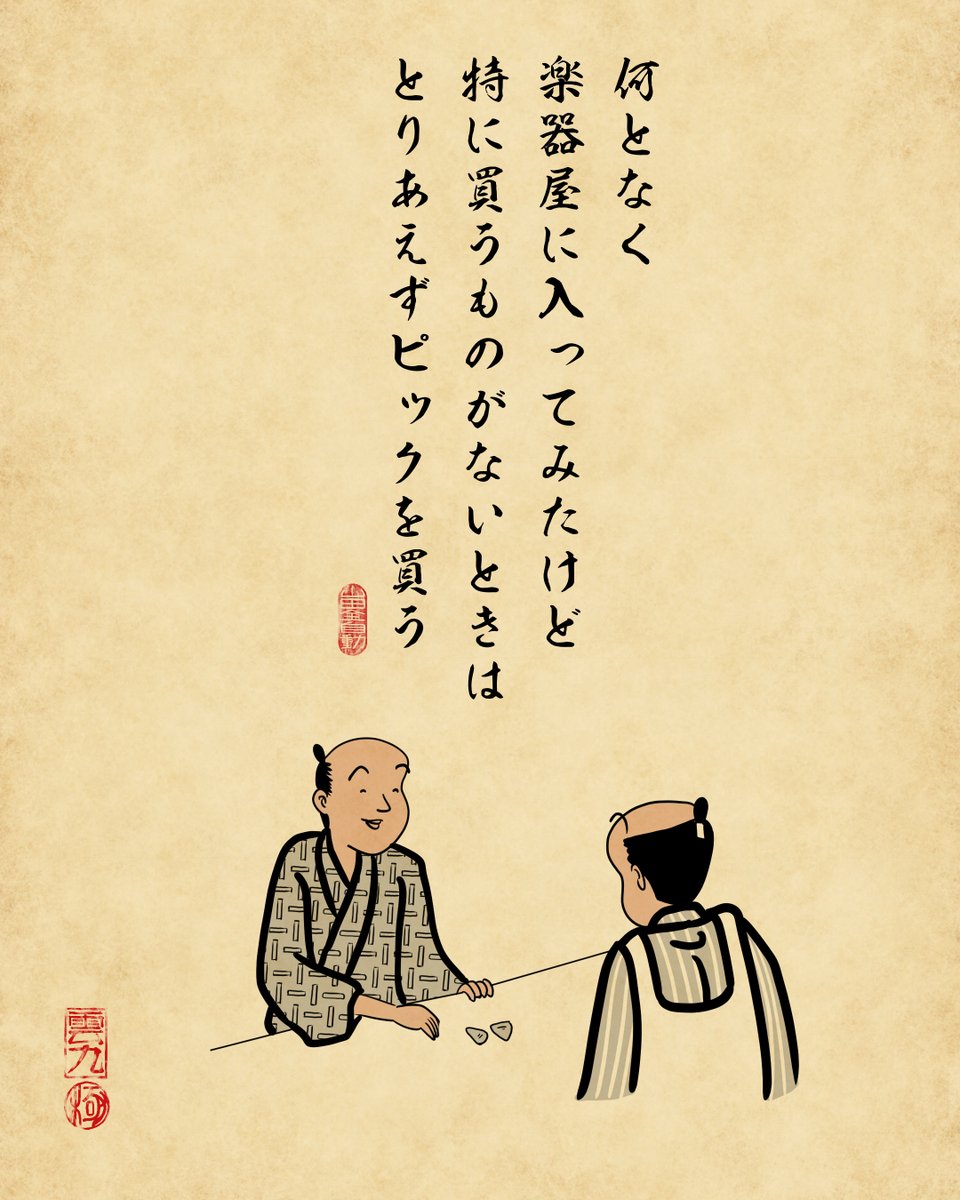 何となく
楽器屋に入ってみたけど
特に買うものがないときは
とりあえずピックを買う